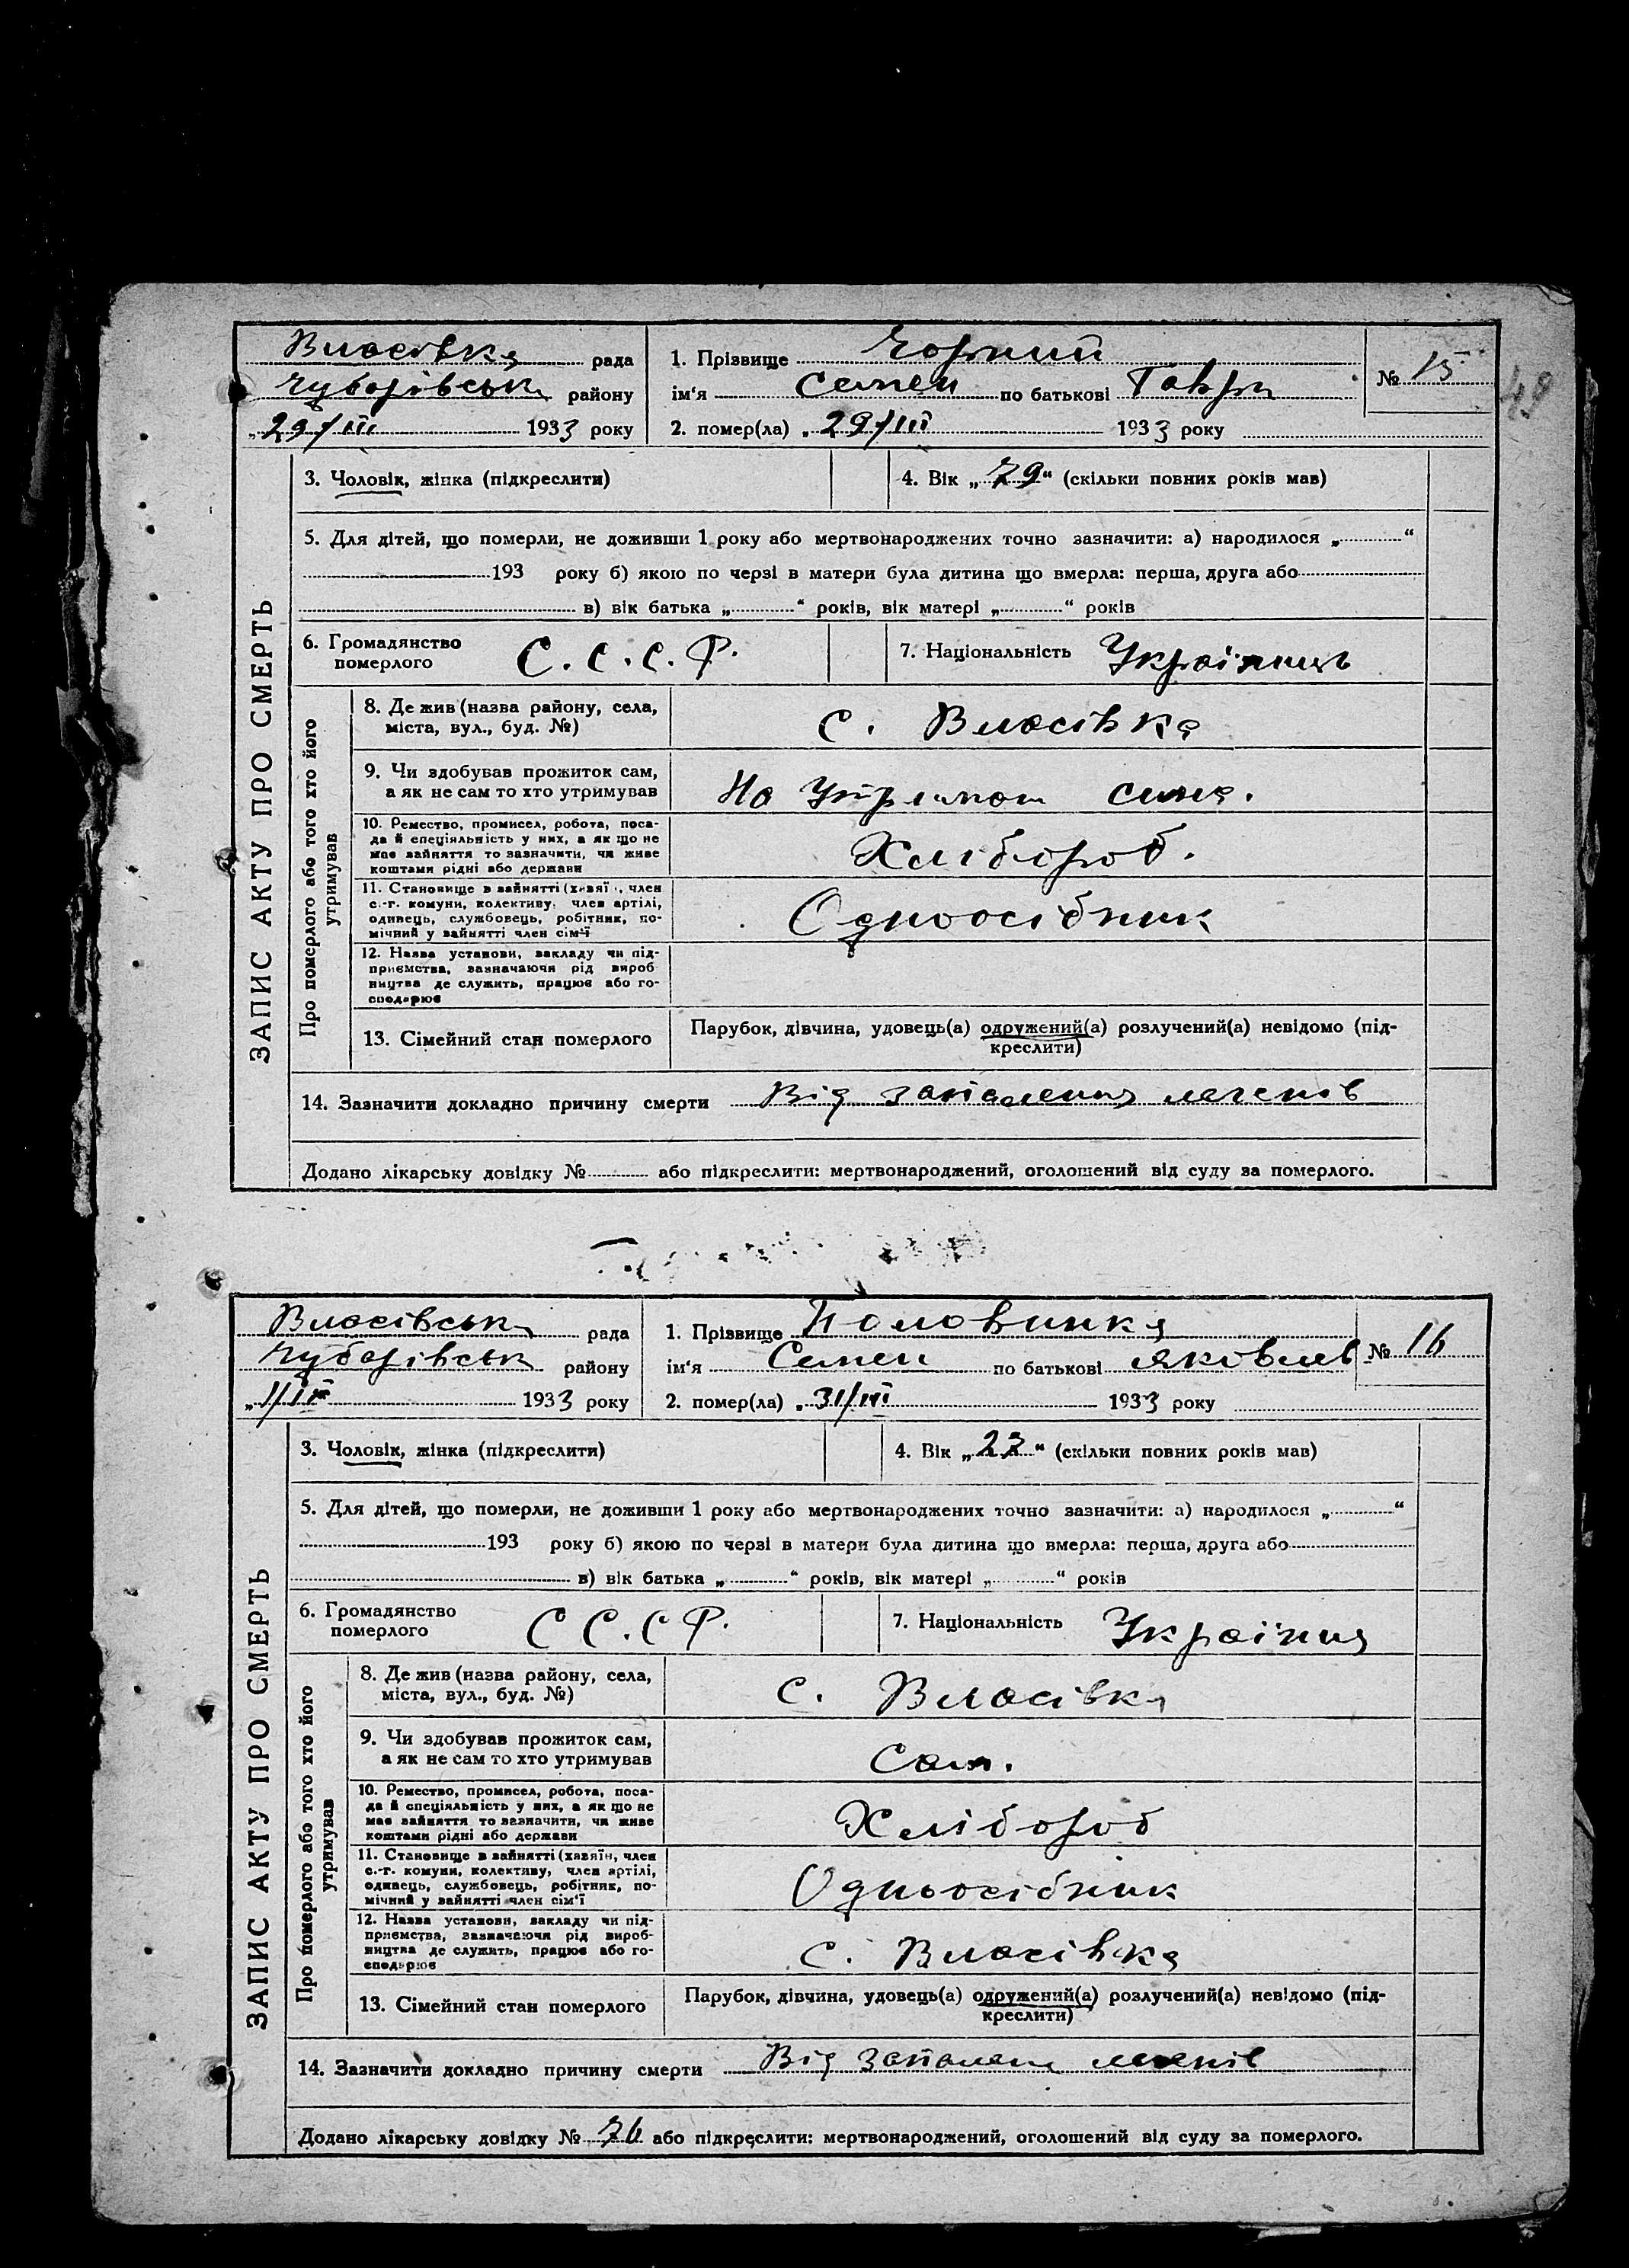 Власівка рада
Чубарівськ району
„29/III 1933 року
1. Прізвище Чорний
ім'я Семен по батькові Гаври
№ 15
2. помер(ла) „29/III 1933 року
49
ЗАПИС АКТУ ПРО СМЕРТЬ
3. Чоловік, жінка (підкреслити)
4. Вік „79“ (скільки повних років мав)
5. Для дітей, що померли, не доживши 1 року або мертвонароджених точно зазначити: а) народилося „ “
193 року б) якою по черзі в матери була дитина що вмерла: перша, друга або
в) вік батька „ “ років, вік матері „ “ років
6. Громадянство
померлого
С.С.С.Р.
7. Національність Українець
Про померлого або того хто його
утримував
8. Де жив (назва району, села,
міста, вул., буд. №)
с. Власівка
9. Чи здобував прожиток сам,
а як не сам то хто утримував
На утриман сина.
10. Ремество, промисел, робота, поса-
да й спеціяльність у них, а як що не
має зайняття то зазначити, чи живе
коштами рідні або держави
Хлібороб.
11. Становище в зайнятті (хазяїн, член
с.-г. комуни, колективу, член артілі,
одинець, службовець, робітник, по-
мічний у зайнятті член сім'ї
Одноосібник
12. Назва установи, закладу чи під-
приємства, зазначаючи рід вироб-
ництва де служить, працює або го-
сподарює
13. Сімейний стан померлого
Парубок, дівчина, удовець(а) одружений(а) розлучений(а) невідомо (під-
креслити)
14. Зазначити докладно причину смерти Від запалення легенів
Додано лікарську довідку № або підкреслити: мертвонароджений, оголошений від суду за померлого.
Власівська рада
Чубарівськ району
1933 року
1. Прізвище Половинка
ім'я Семен по батькові Яковлев
№ 16
2. помер(ла) „31/III 1933 року
ЗАПИС АКТУ ПРО СМЕРТЬ
3. Чоловік, жінка (підкреслити)
4. Вік „27“ (скільки повних років мав)
5. Для дітей, що померли, не доживши 1 року або мертвонароджених точно зазначити: а) народилося „ “
193 року б) якою по черзі в матери була дитина що вмерла: перша, друга або
в) вік батька „ “ років, вік матері „ “ років
6. Громадянство
померлого
С С.С Р.
7. Національність
Про померлого або того хто його
утримував
8. Де жив (назва району, села,
міста, вул., буд. №)
с. Власівка
9. Чи здобував прожиток сам,
а як не сам то хто утримував
Сам.
10. Ремество, промисел, робота, поса-
да й спеціяльність у них, а як що не
має зайняття то зазначити, чи живе
коштами рідні або держави
Хлібороб
11. Становище в зайнятті (хазяїн, член
с.-г. комуни, колективу, член артілі,
одинець, службовець, робітник, по-
мічний у зайнятті член сім'ї
Одноосібник
12. Назва установи, закладу чи під-
приємства, зазначаючи рід вироб-
ництва де служить, працює або го-
сподарює
с. Власівка
13. Сімейний стан померлого
Парубок, дівчина, удовець(а) одружений(а) розлучений(а) невідомо (під-
креслити)
14. Зазначити докладно причину смерти Від запален легенів
Додано лікарську довідку № 76 або підкреслити: мертвонароджений, оголошений від суду за померлого.